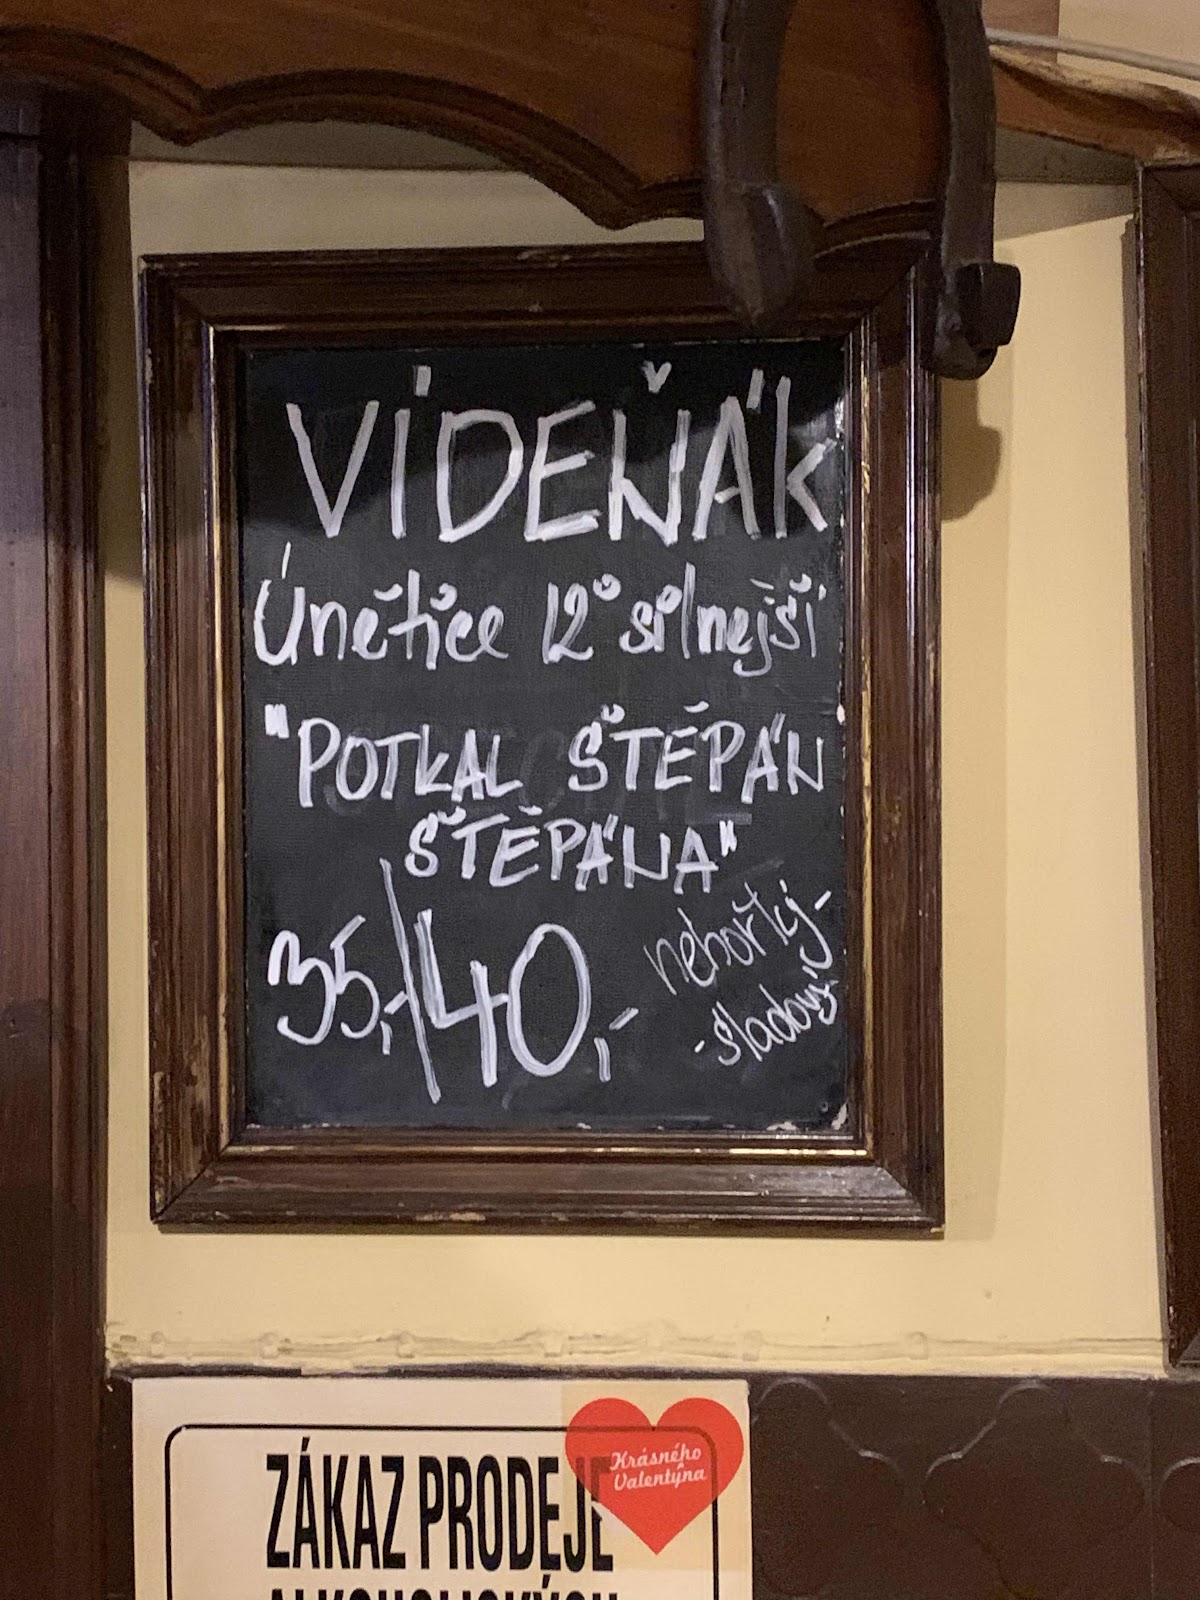 VÍDEŇÁK
Únětice 12° silnější
"POTKAL ŠTĚPÁN
ŠTĚPÁNA"
35,-/40,-
nehořký-
-sladový
ZÁKAZ PRODEJE
Krásného
Valentýna
ALKOHOLICKÝCH